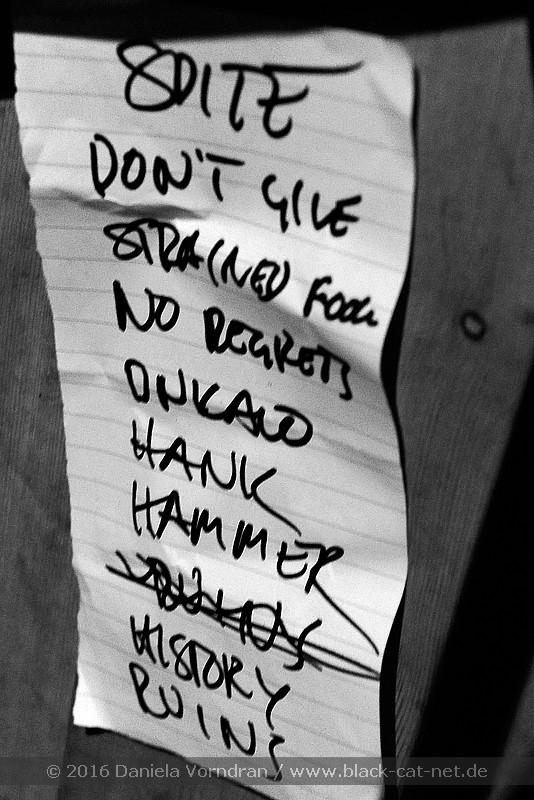 SPITE
DON'T GIVE
STRAINED FOOL
NO REGRETS
ONKALO
HANK
HAMMER
HISTORY
RUINS
© 2016 Daniela Vorndran / www.black-cat-net.de